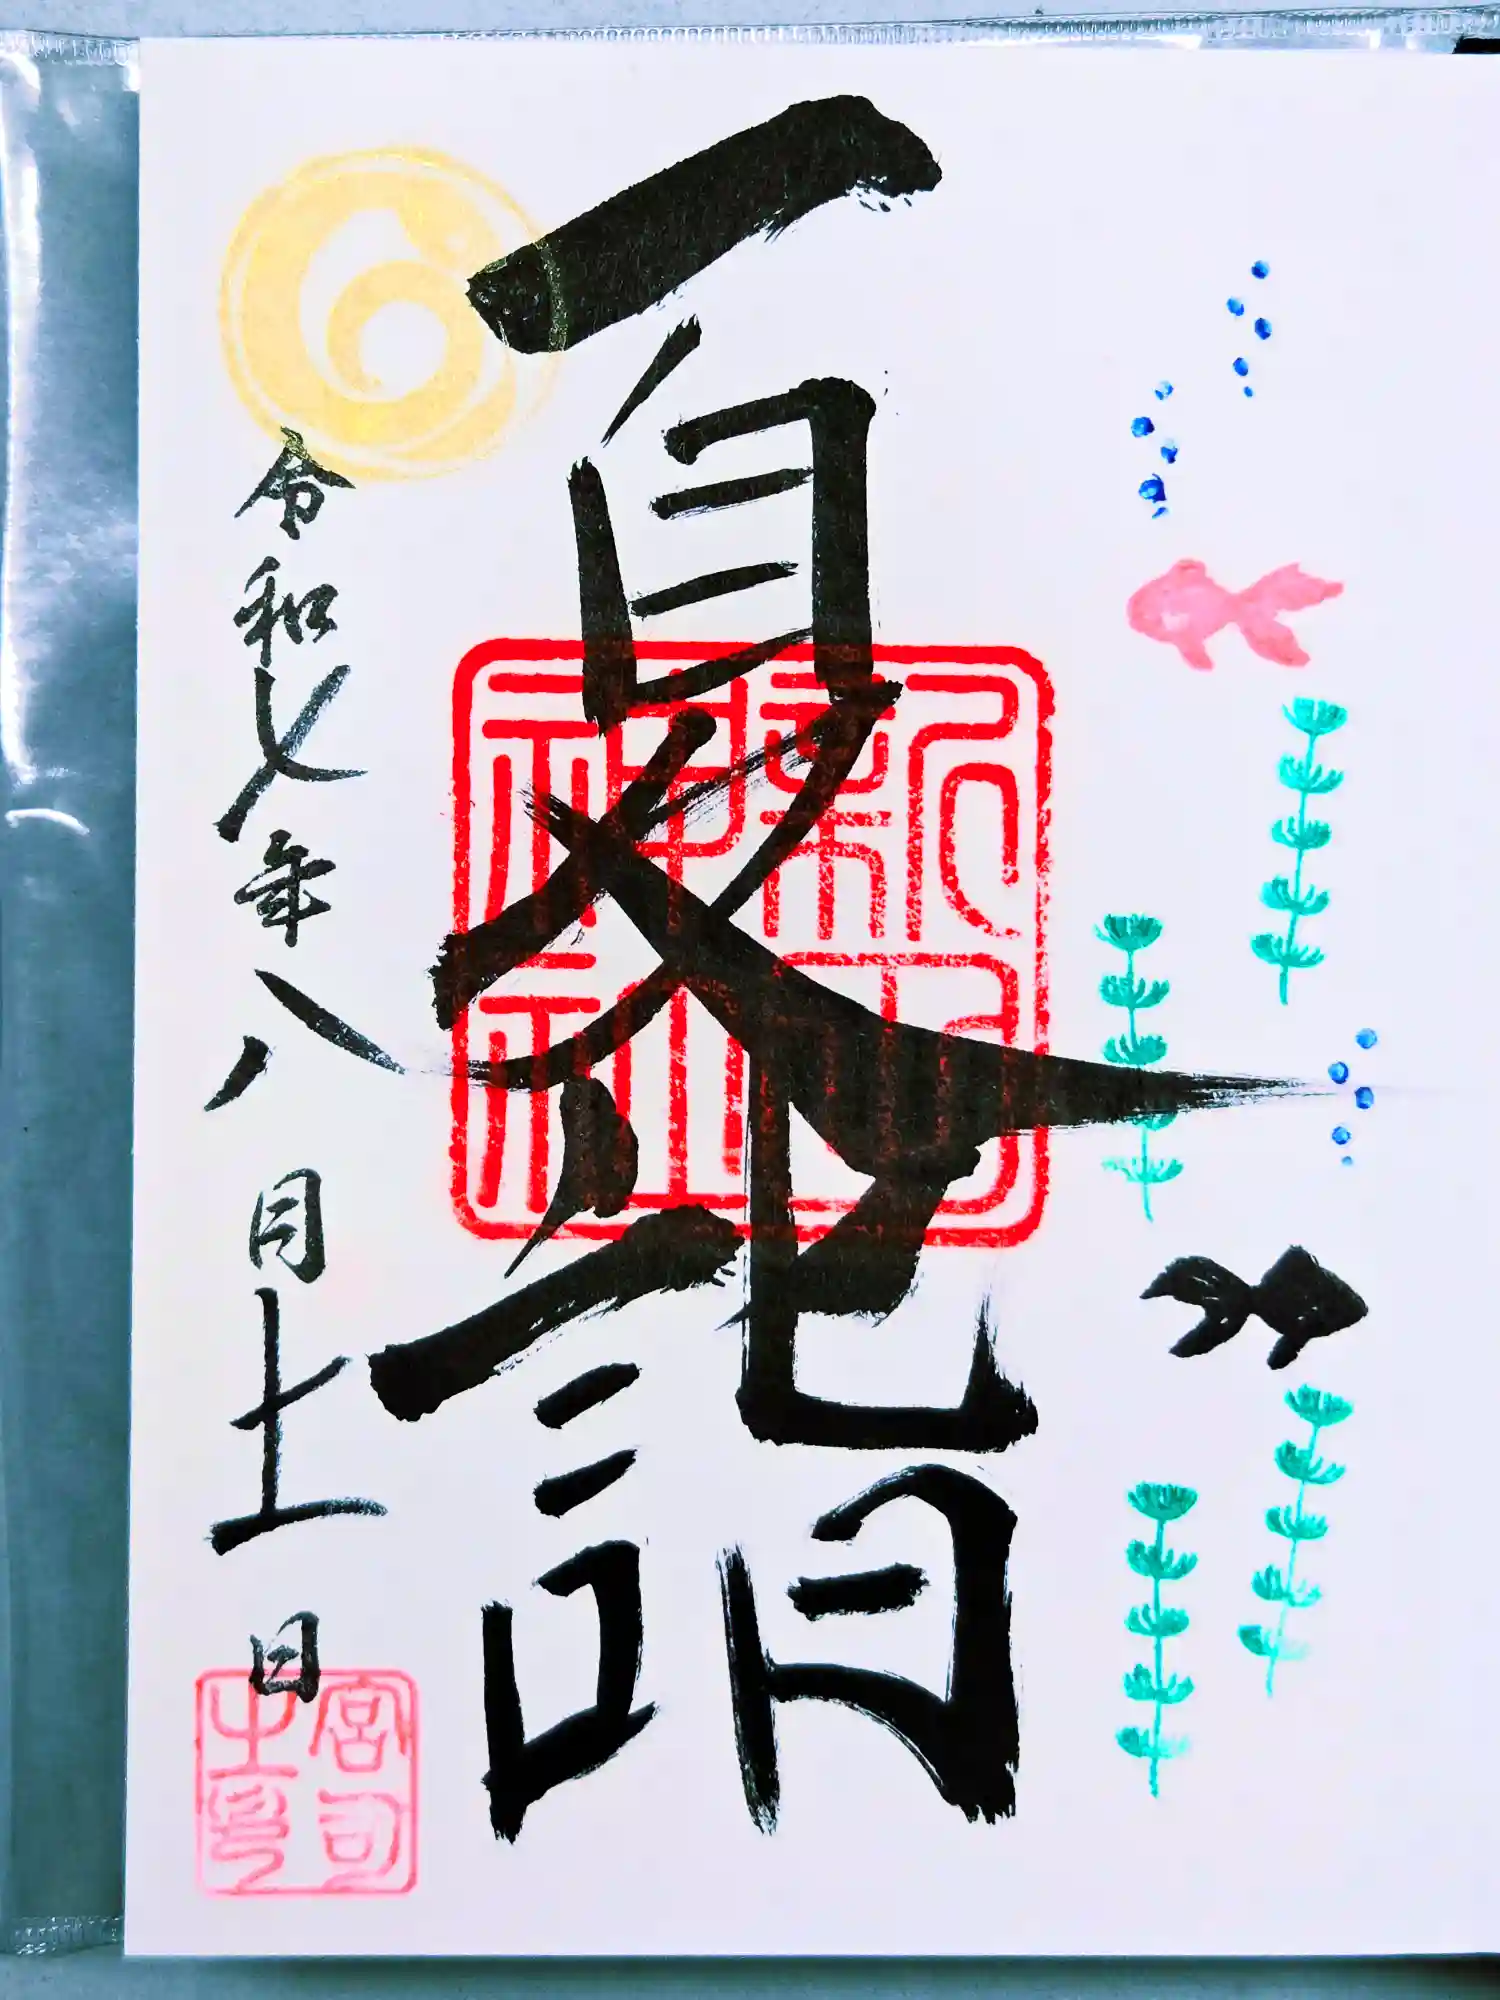 夏詣
令和七年八月十一日
新
神社
宮司
之印